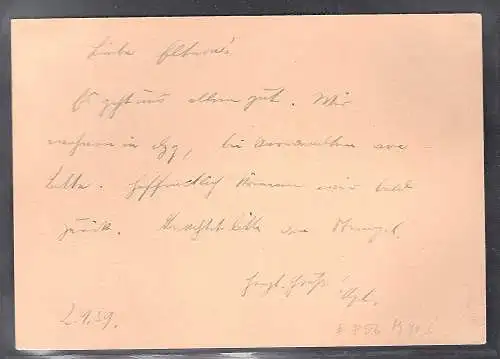 Liebe Elterns!
Es geht uns allen gut. Wir
wohnen in Dzg, bei Verwandten von
Lotte. Hoffentlich können wir bald
zurück.
Herzl. Grüße
2.9.39.